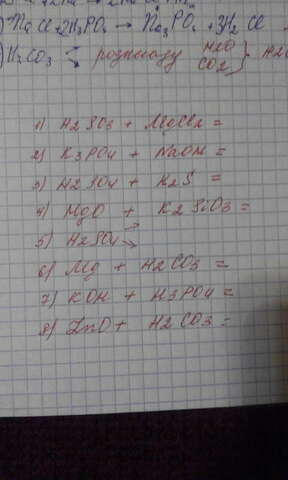 NaCl + 2H3PO4 → Na3PO4 + 3H2Cl
H2CO3 розпкладу H2O
CO2 } H2O
1) H2SO3 + MgCl2 =
2) K3PO4 + NaOH =
3) H2SO4 + K2S =
4) MgO + K2SiO3 =
5) H2SO4 →
6) Mg + H2CO3 =
7) KOH + H3PO4 =
8) ZnO + H2CO3 =